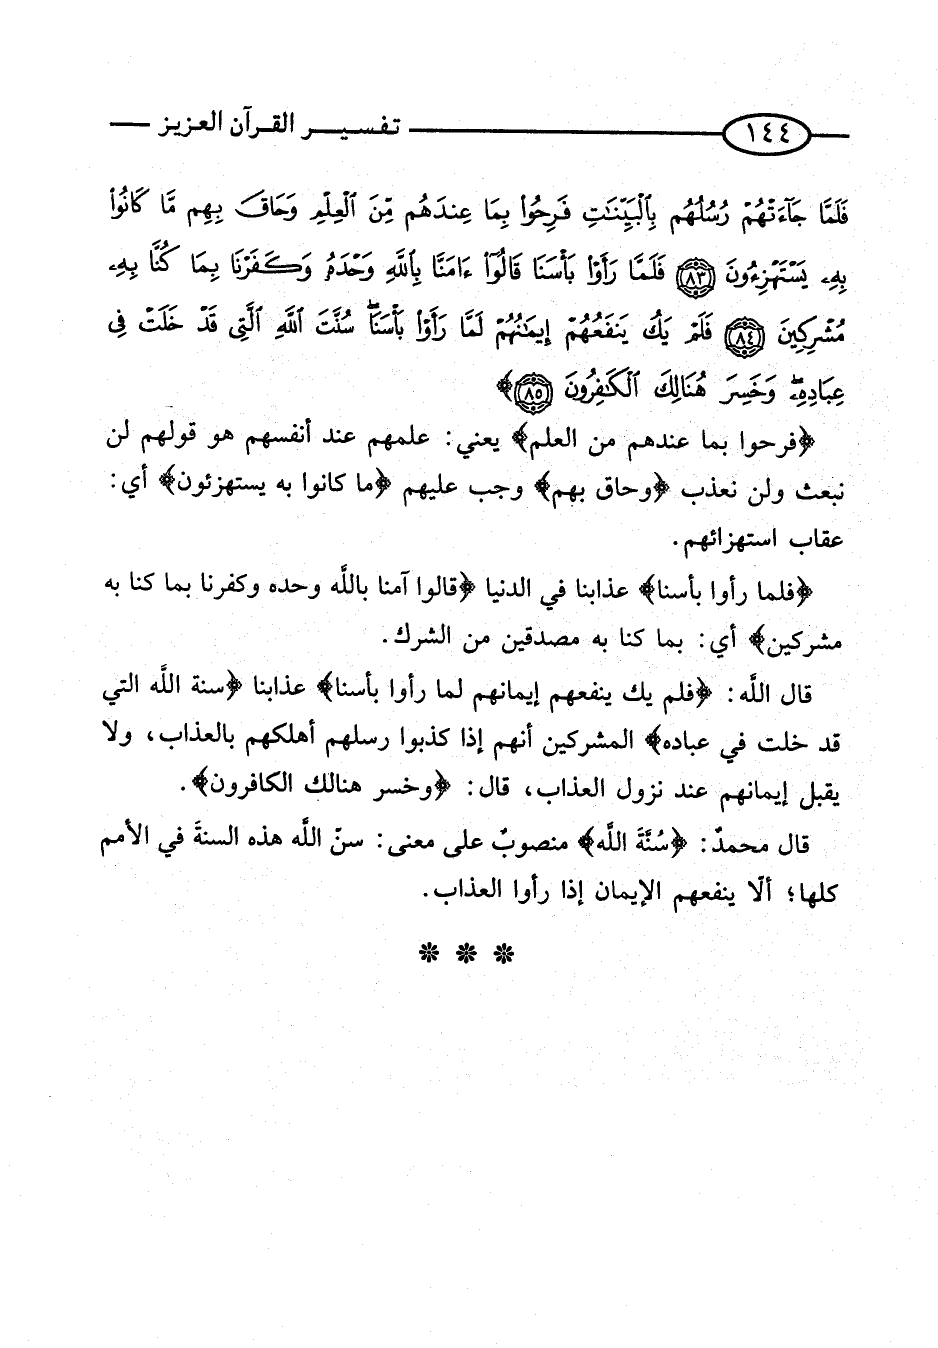 ١٤٤ تفسير القرآن العزيز
فَلَمَّا جَآءَتْهُمْ رُسُلُهُم بِٱلْبَيِّنَٰتِ فَرِحُوا۟ بِمَا عِندَهُم مِّنَ ٱلْعِلْمِ وَحَاقَ بِهِم مَّا كَانُوا۟
بِهِۦ يَسْتَهْزِءُونَ ٨٣ فَلَمَّا رَأَوْا۟ بَأْسَنَا قَالُوٓا۟ ءَامَنَّا بِٱللَّهِ وَحْدَهُۥ وَكَفَرْنَا بِمَا كُنَّا بِهِۦ
مُشْرِكِينَ ٨٤ فَلَمْ يَكُ يَنفَعُهُمْ إِيمَٰنُهُمْ لَمَّا رَأَوْا۟ بَأْسَنَا ۖ سُنَّتَ ٱللَّهِ ٱلَّتِى قَدْ خَلَتْ فِى
عِبَادِهِۦ ۖ وَخَسِرَ هُنَالِكَ ٱلْكَٰفِرُونَ ٨٥﴾
﴿فرحوا بما عندهم من العلم﴾ يعني: علمهم عند أنفسهم هو قولهم لن
نبعث ولن نعذب ﴿وحاق بهم﴾ وجب عليهم ﴿ما كانوا به يستهزئون﴾ أي:
عقاب استهزائهم.
﴿فلما رأوا بأسنا﴾ عذابنا في الدنيا ﴿قالوا آمنا باللَّه وحده وكفرنا بما كنا به
مشركين﴾ أي: بما كنا به مصدقين من الشرك.
قال اللَّه: ﴿فلم يك ينفعهم إيمانهم لما رأوا بأسنا﴾ عذابنا ﴿سنة اللَّه التي
قد خلت في عباده﴾ المشركين أنهم إذا كذبوا رسلهم أهلكهم بالعذاب، ولا
يقبل إيمانهم عند نزول العذاب، قال: ﴿وخسر هنالك الكافرون﴾.
قال محمدٌ: ﴿سُنَّةَ اللَّه﴾ منصوبٌ على معنى: سنّ اللَّه هذه السنةَ في الأمم
كلها؛ ألّا ينفعهم الإيمان إذا رأوا العذاب.